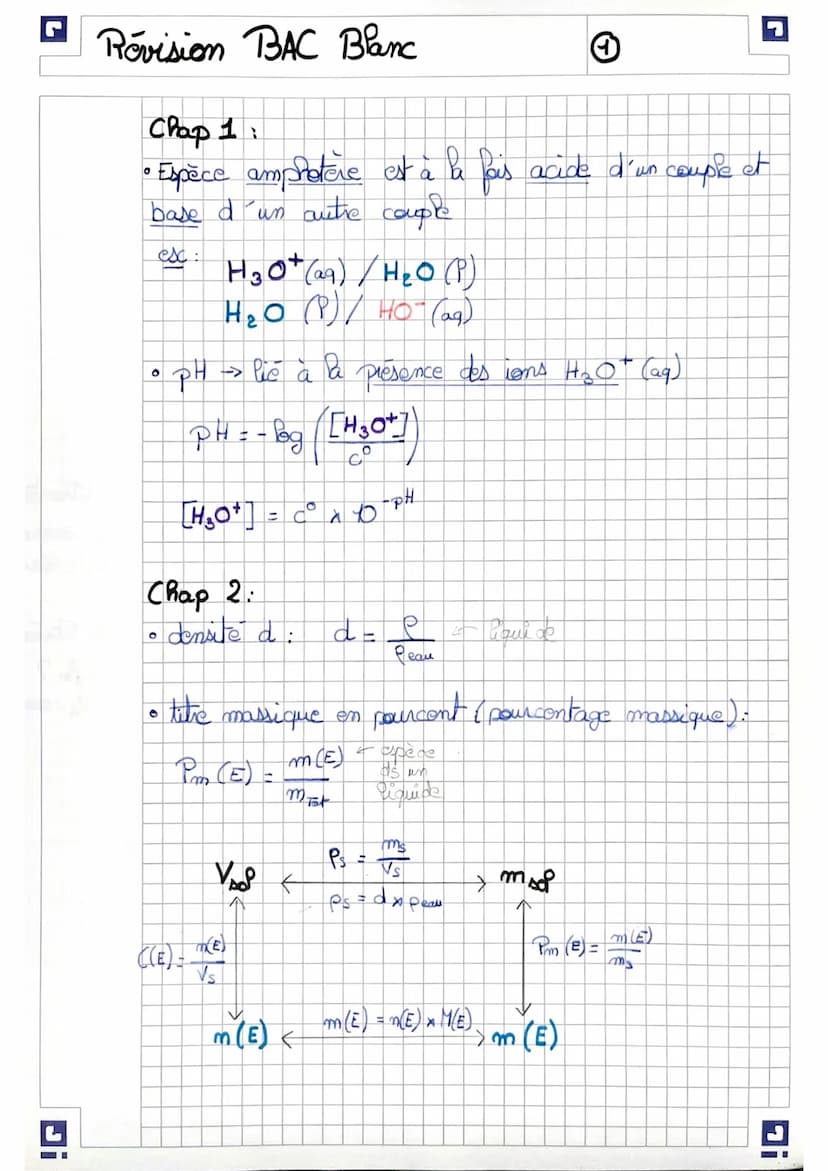 Révision BAC Blanc
1
Chap 1 :
• Espèce amphotère est à la fois acide d'un couple et
base d'un autre couple
ex :
H₃O⁺(aq) / H₂O (l)
H₂O (l) / HO⁻ (aq)
• pH → lié à la présence des ions H₃O⁺ (aq)
pH = - log ([H₃O⁺]/c⁰)
[H₃O⁺] = c⁰ × 10⁻ᵖᴴ
Chap 2 :
• densité d : d = ρ/ρeau ← liquide
• titre massique en pourcent (pourcentage massique) :
Pm (E) = m(E)/mTot ← espèce ds un liquide
ρs = ms/Vs
Vsol ↔ msol
ρs = d × ρeau
C(E) = n(E)/Vs
Pm (E) = m(E)/ms
m(E) = n(E) × M(E)
n(E) ↔ m(E)